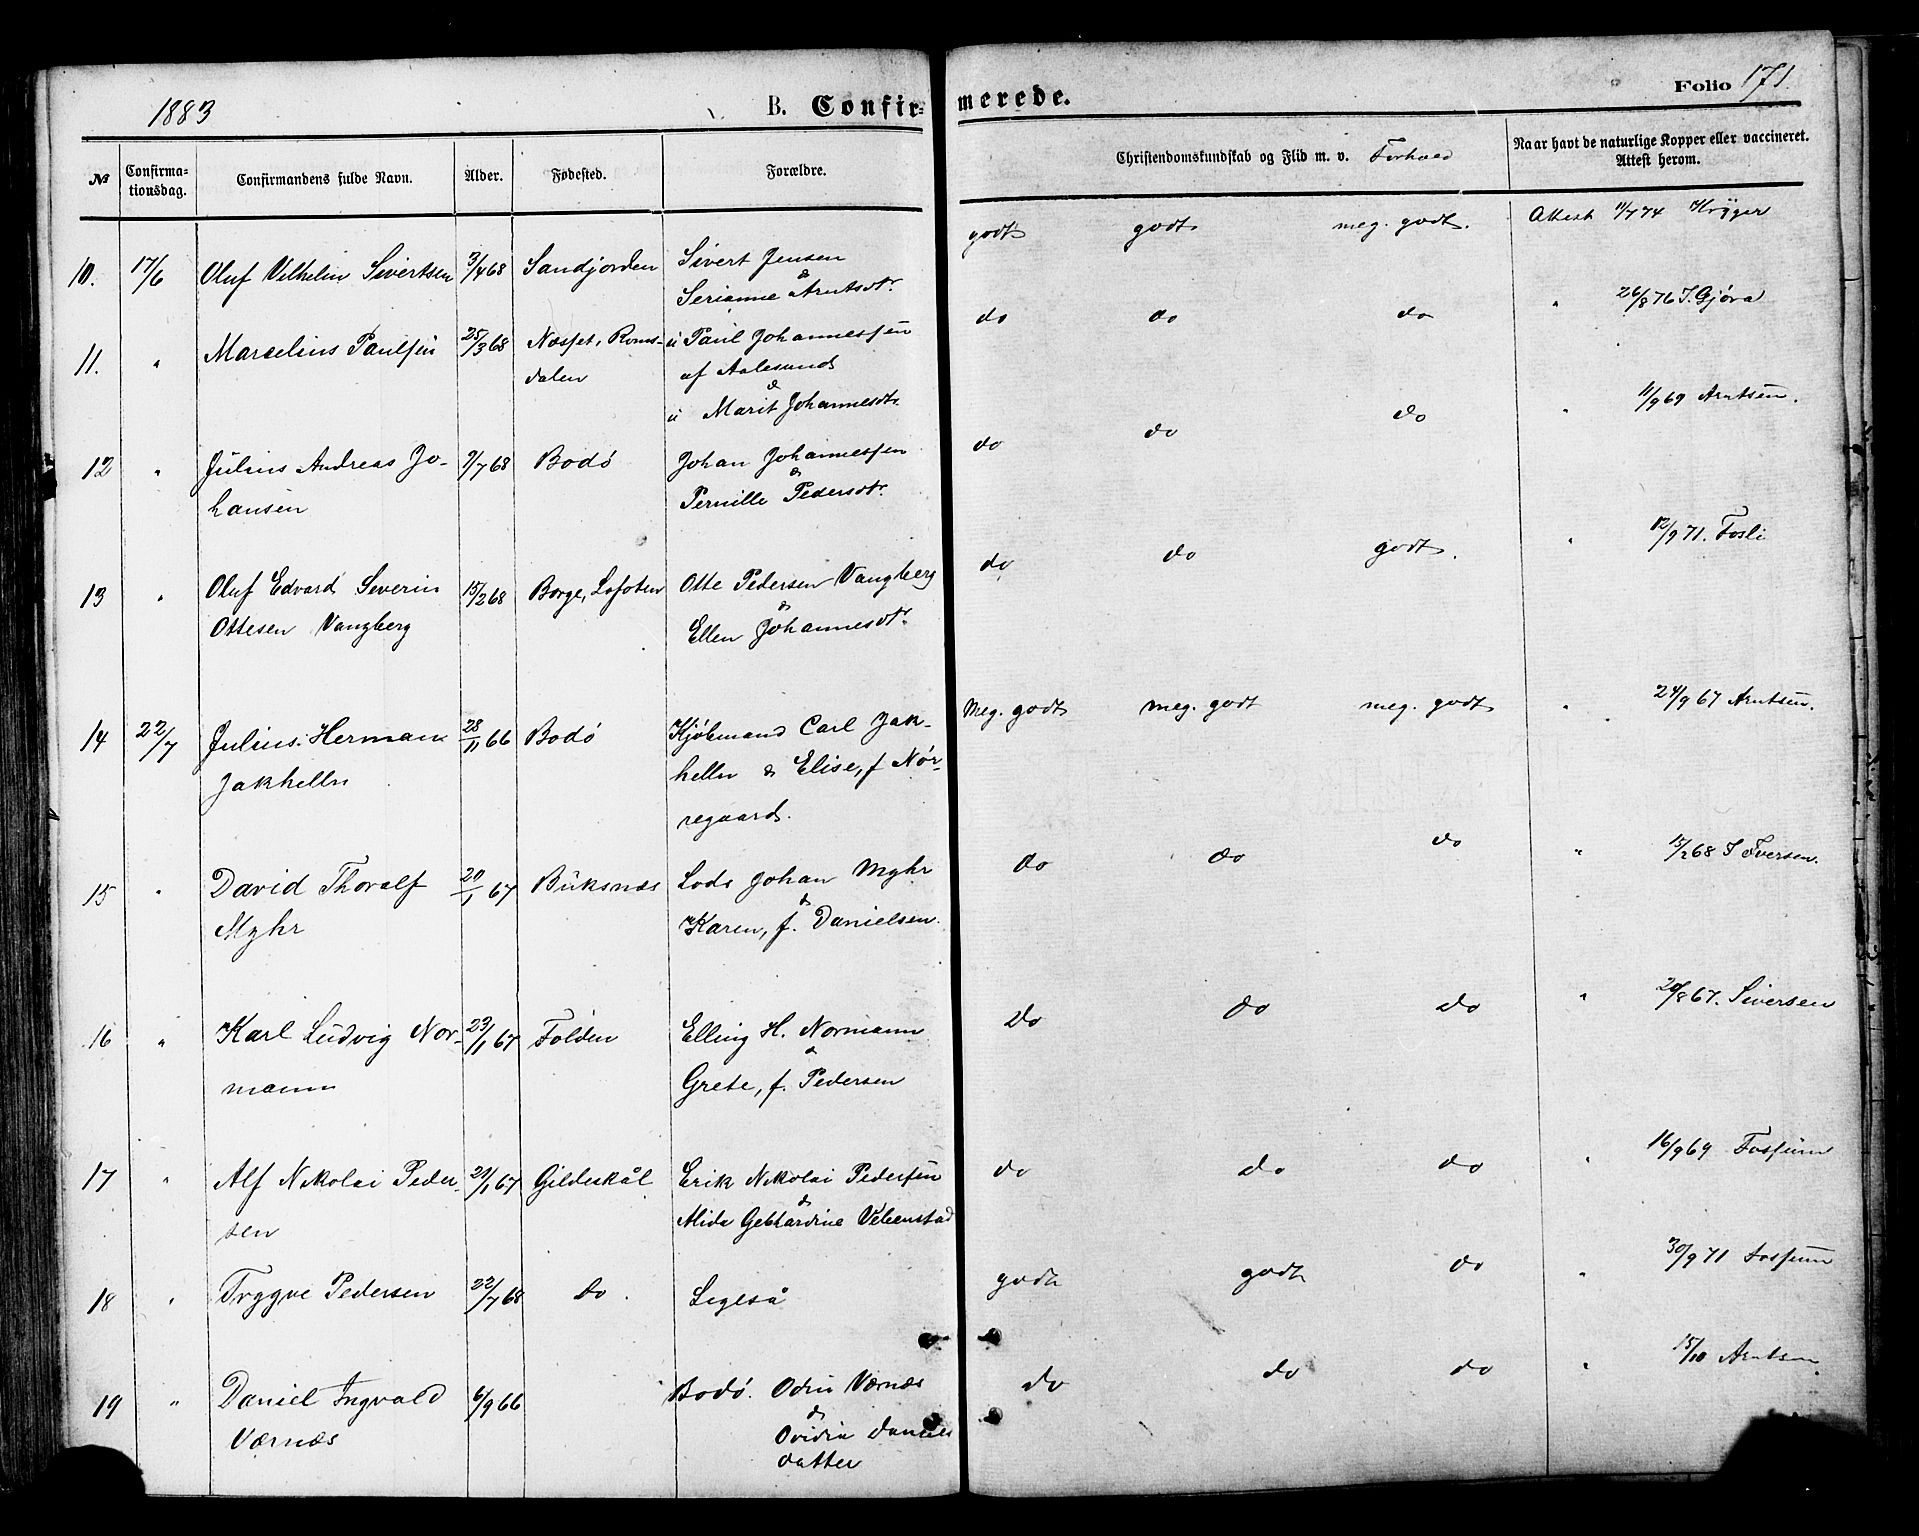 1883 B. Confir- merede. Folio 171.
№ Confirma-tionsdag. Confirmandens fulde Navn. Alder. Fødested. Forældre. Christendomskundskab og Flid m. v. Forhold Naar havt de naturlige Kopper eller vaccineret. Attest herom.
10. 17/6 Oluf Vilhelm Sivertsen 3/4 68 Sandjorden Sivert Jensen godt godt meg. godt. Attest 11/7 74 Krÿger
& Serianne Arntsdtr.
11. " Marselius Paulsen 25/3 68 Næsset, Roms- u Paul Johannessen do do do " 26/8 76 I. Gjøra
dalen af Aalesund
& u Marit Johannesdtr.
12 " Julius Andreas Jo- 9/7 68 Bodø Johan Johannessen do do do " 11/9 69 Arntsen.
hansen & Pernille Pedersdtr.
13 " Oluf Edvard Severin 15/2 68 Borge, Lofoten Otte Pedersen Vangberg do do godt. " 12/9 71. Fosli
Ottesen Vangberg & Ellen Johannesdtr.
14 22/7 Julius Herman 28/11 66 Bodø Kjøbmand Carl Jak- Meg. godt meg. godt meg. godt " 24/9 67 Arntsen.
Jakhelln helln & Elise, f Nør-
regaard.
15 " David Thoralf 20/1 67 Buksnæs Lods Johan Myhr do do do " 15/2 68 I Iversen.
Myhr & Karen, f. Danielsen.
16 " Karl Ludvig Nor- 23/1 67 Folden Elling H. Normann do do do " 20/8 67. Siversen
mann & Grete, f. Pedersen
17 " Alf Nikolai Peder- 29/1 67 Gildeskål Erik Nikolai Pedersen do do do " 16/9 69 Fossum
sen & Alida Gebhardine
18 " Tryggve Pedersen 22/7 68 do. Ligeså godt godt do " 30/9 71 Fossum
19 " Daniel Ingvald 6/9 66 Bodø. Odin Værnæs do do do " 15/10 Arntsen
Værnæs & Ovidia Daniels
datter